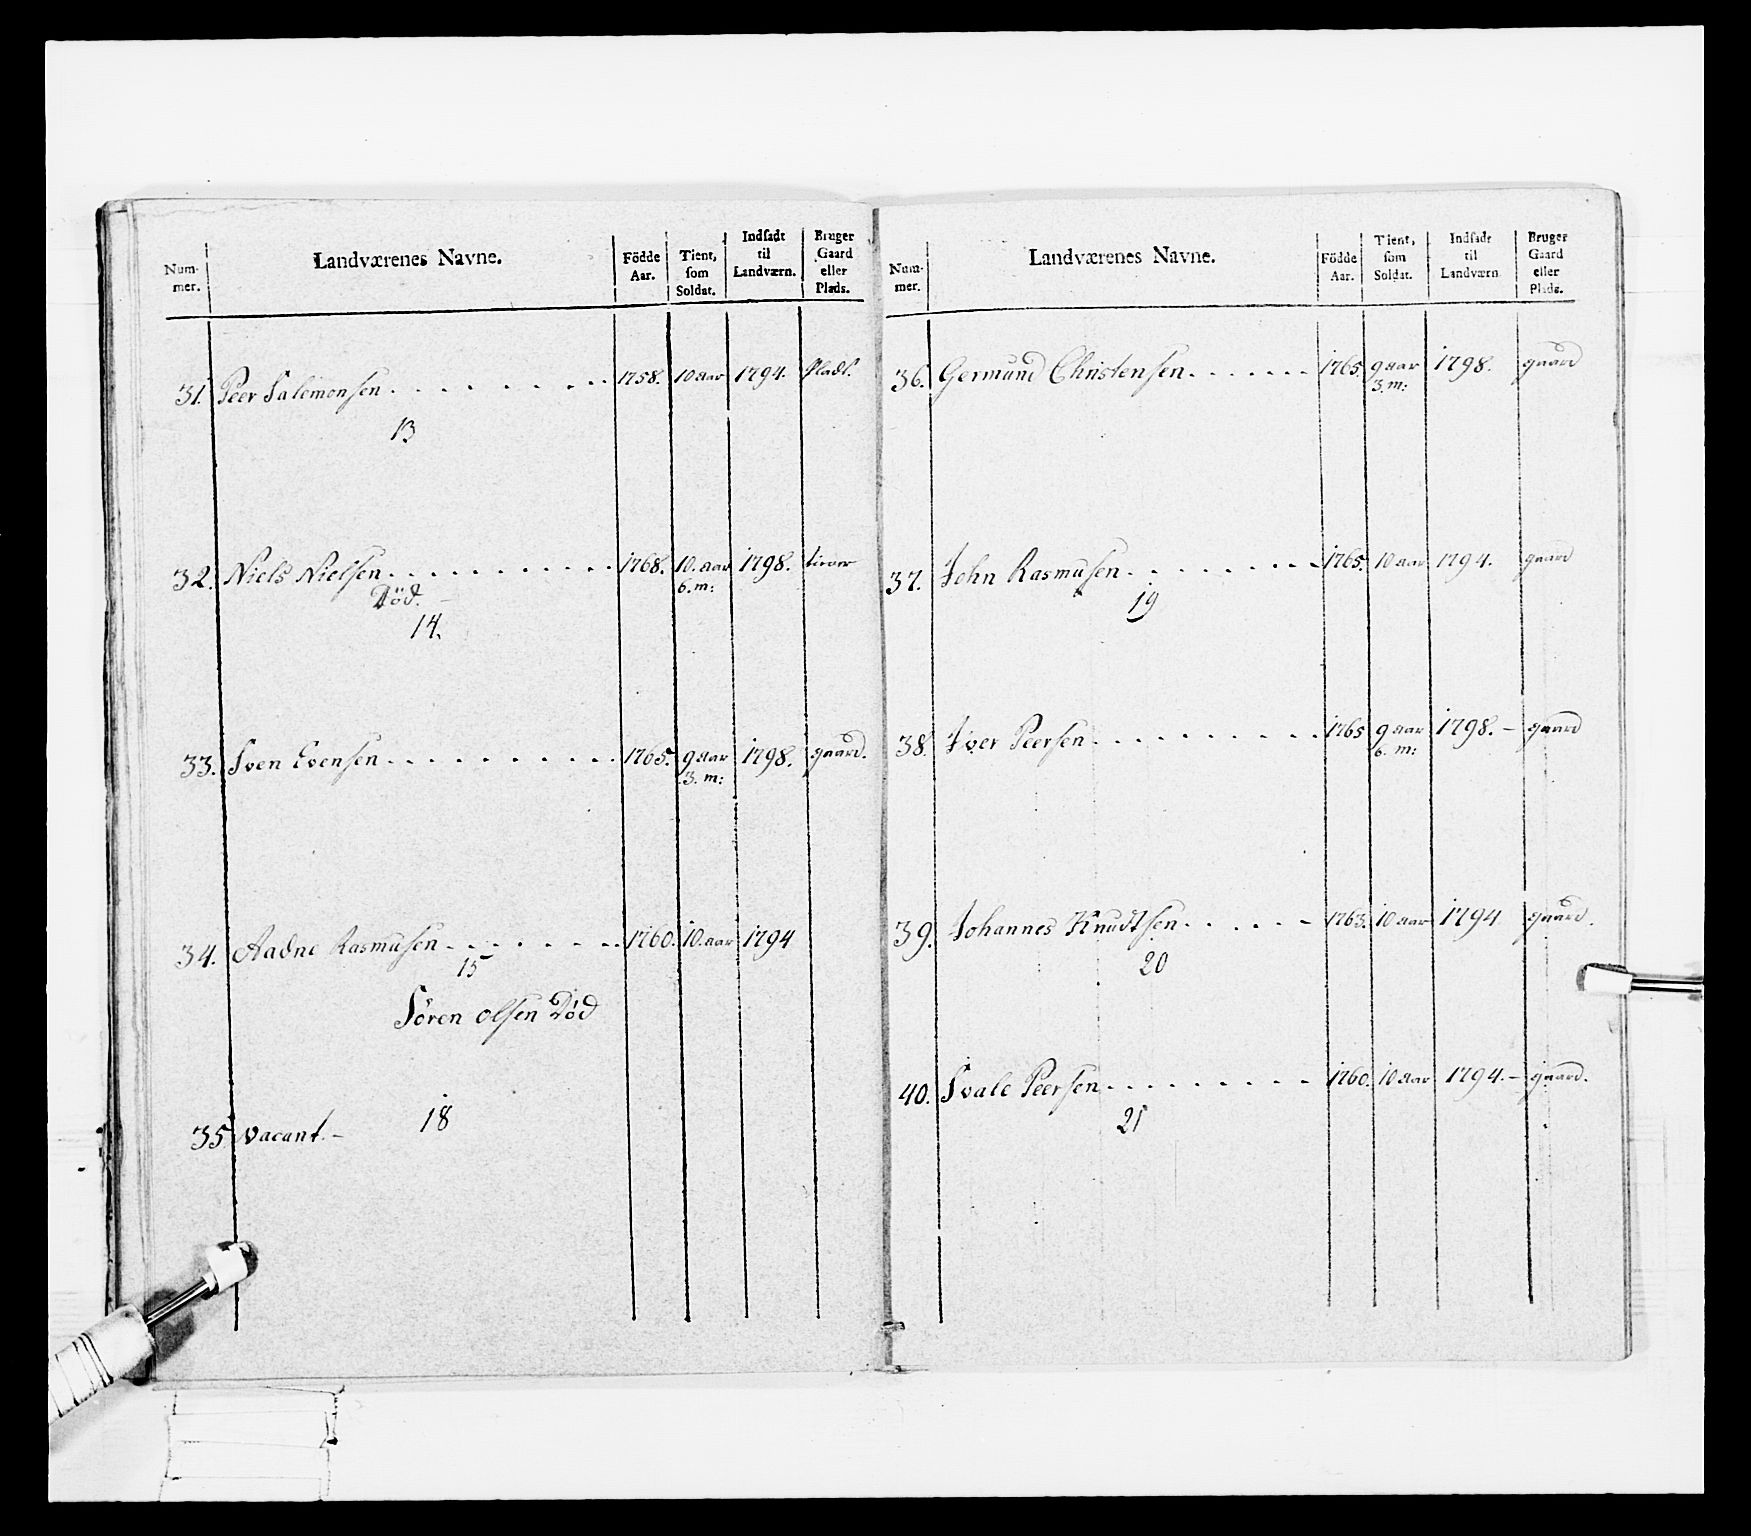 Num-
mer.
Landværenes Navne.
Födde
Aar.
Tient,
som
Soldat.
Indsadt
til
Landværn.
Bruger
Gaard
eller
Plads.
31. Peer Salemonsen. 1758. 10 aar 1794. Plads.
13
32. Niels Nielsen. 1768. 10. aar 1798.
6. m:
Död. –
14.
33. Sven Evensen 1765. 9 aar 1798. gaard.
3. m:
34. Aadne Rasmusen 1760. 10. aar 1794
15
Sören olsen Död
18
35 vacant. –
Num-
mer.
Landværenes Navne.
Födde
Aar.
Tient,
som
Soldat.
Indsadt
til
Landværn
Bruger
Gaard
eller
Plads.
36. Germund Christensen. 1765. 9 aar 1798. gaard
3. m:
37. John Rasmusen. 1765. 10 aar 1794. gaard
19
38. Iver Peersen 1765 9 aar 1798. – gaard
6. m:
39. Johannes Knudtsen. 1763. 10 aar 1794 gaard.
20
40. Svale Peersen. 1760. 10 aar 1794. – gaard.
21